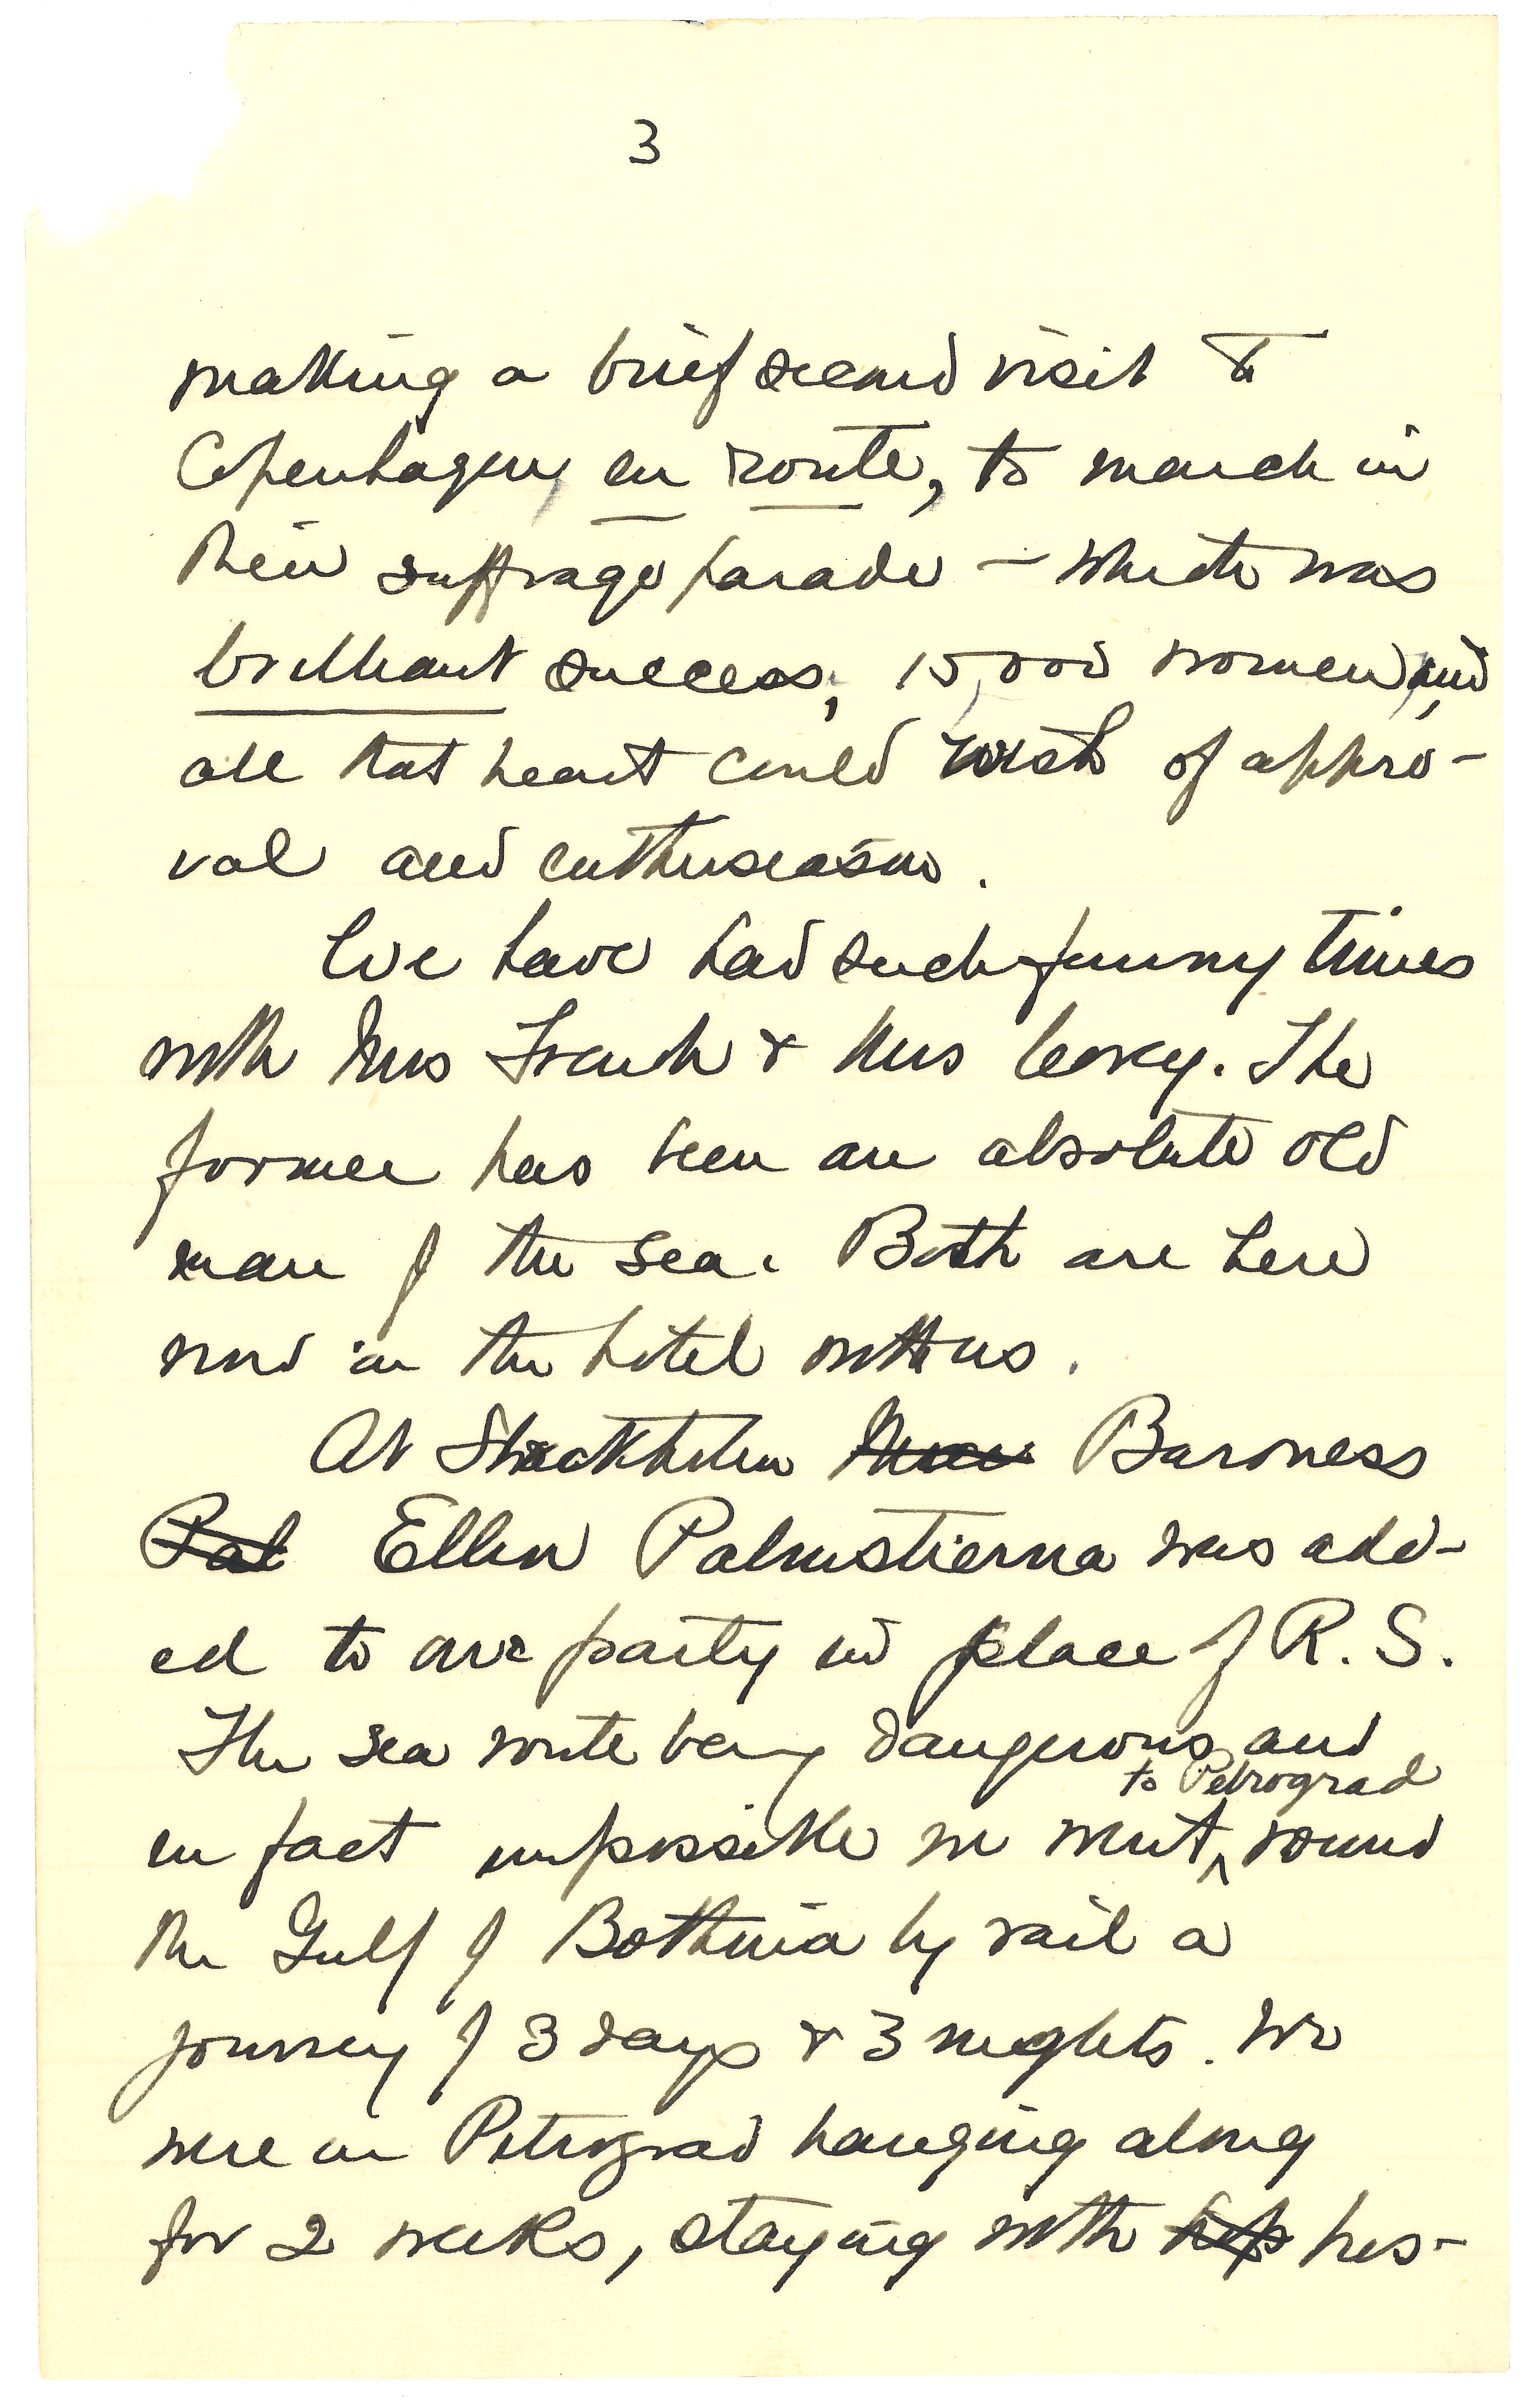 3
making a brief second visit to
Copenhagen, en route, to march in
their suffrage parade – which was
brilliant success, 15,000 women, and
all that heart could wish of appro-
val and enthusiasm.
We have had such funny times
with Mrs & Mrs The
former has been an absolute old
man of the sea. Both are here
now in the hotel with us.
At Stockholm Baroness
Pal Ellen Palmstierna was add-
ed to our party in place of R. S.
The sea route being dangerous and
to Petrograd
in fact impossible we went ^ round
the Gulf of Bothnia by rail a
journey of 3 days & 3 nights. We
were in Petrograd hanging along
for 2 weeks, staying with hos-